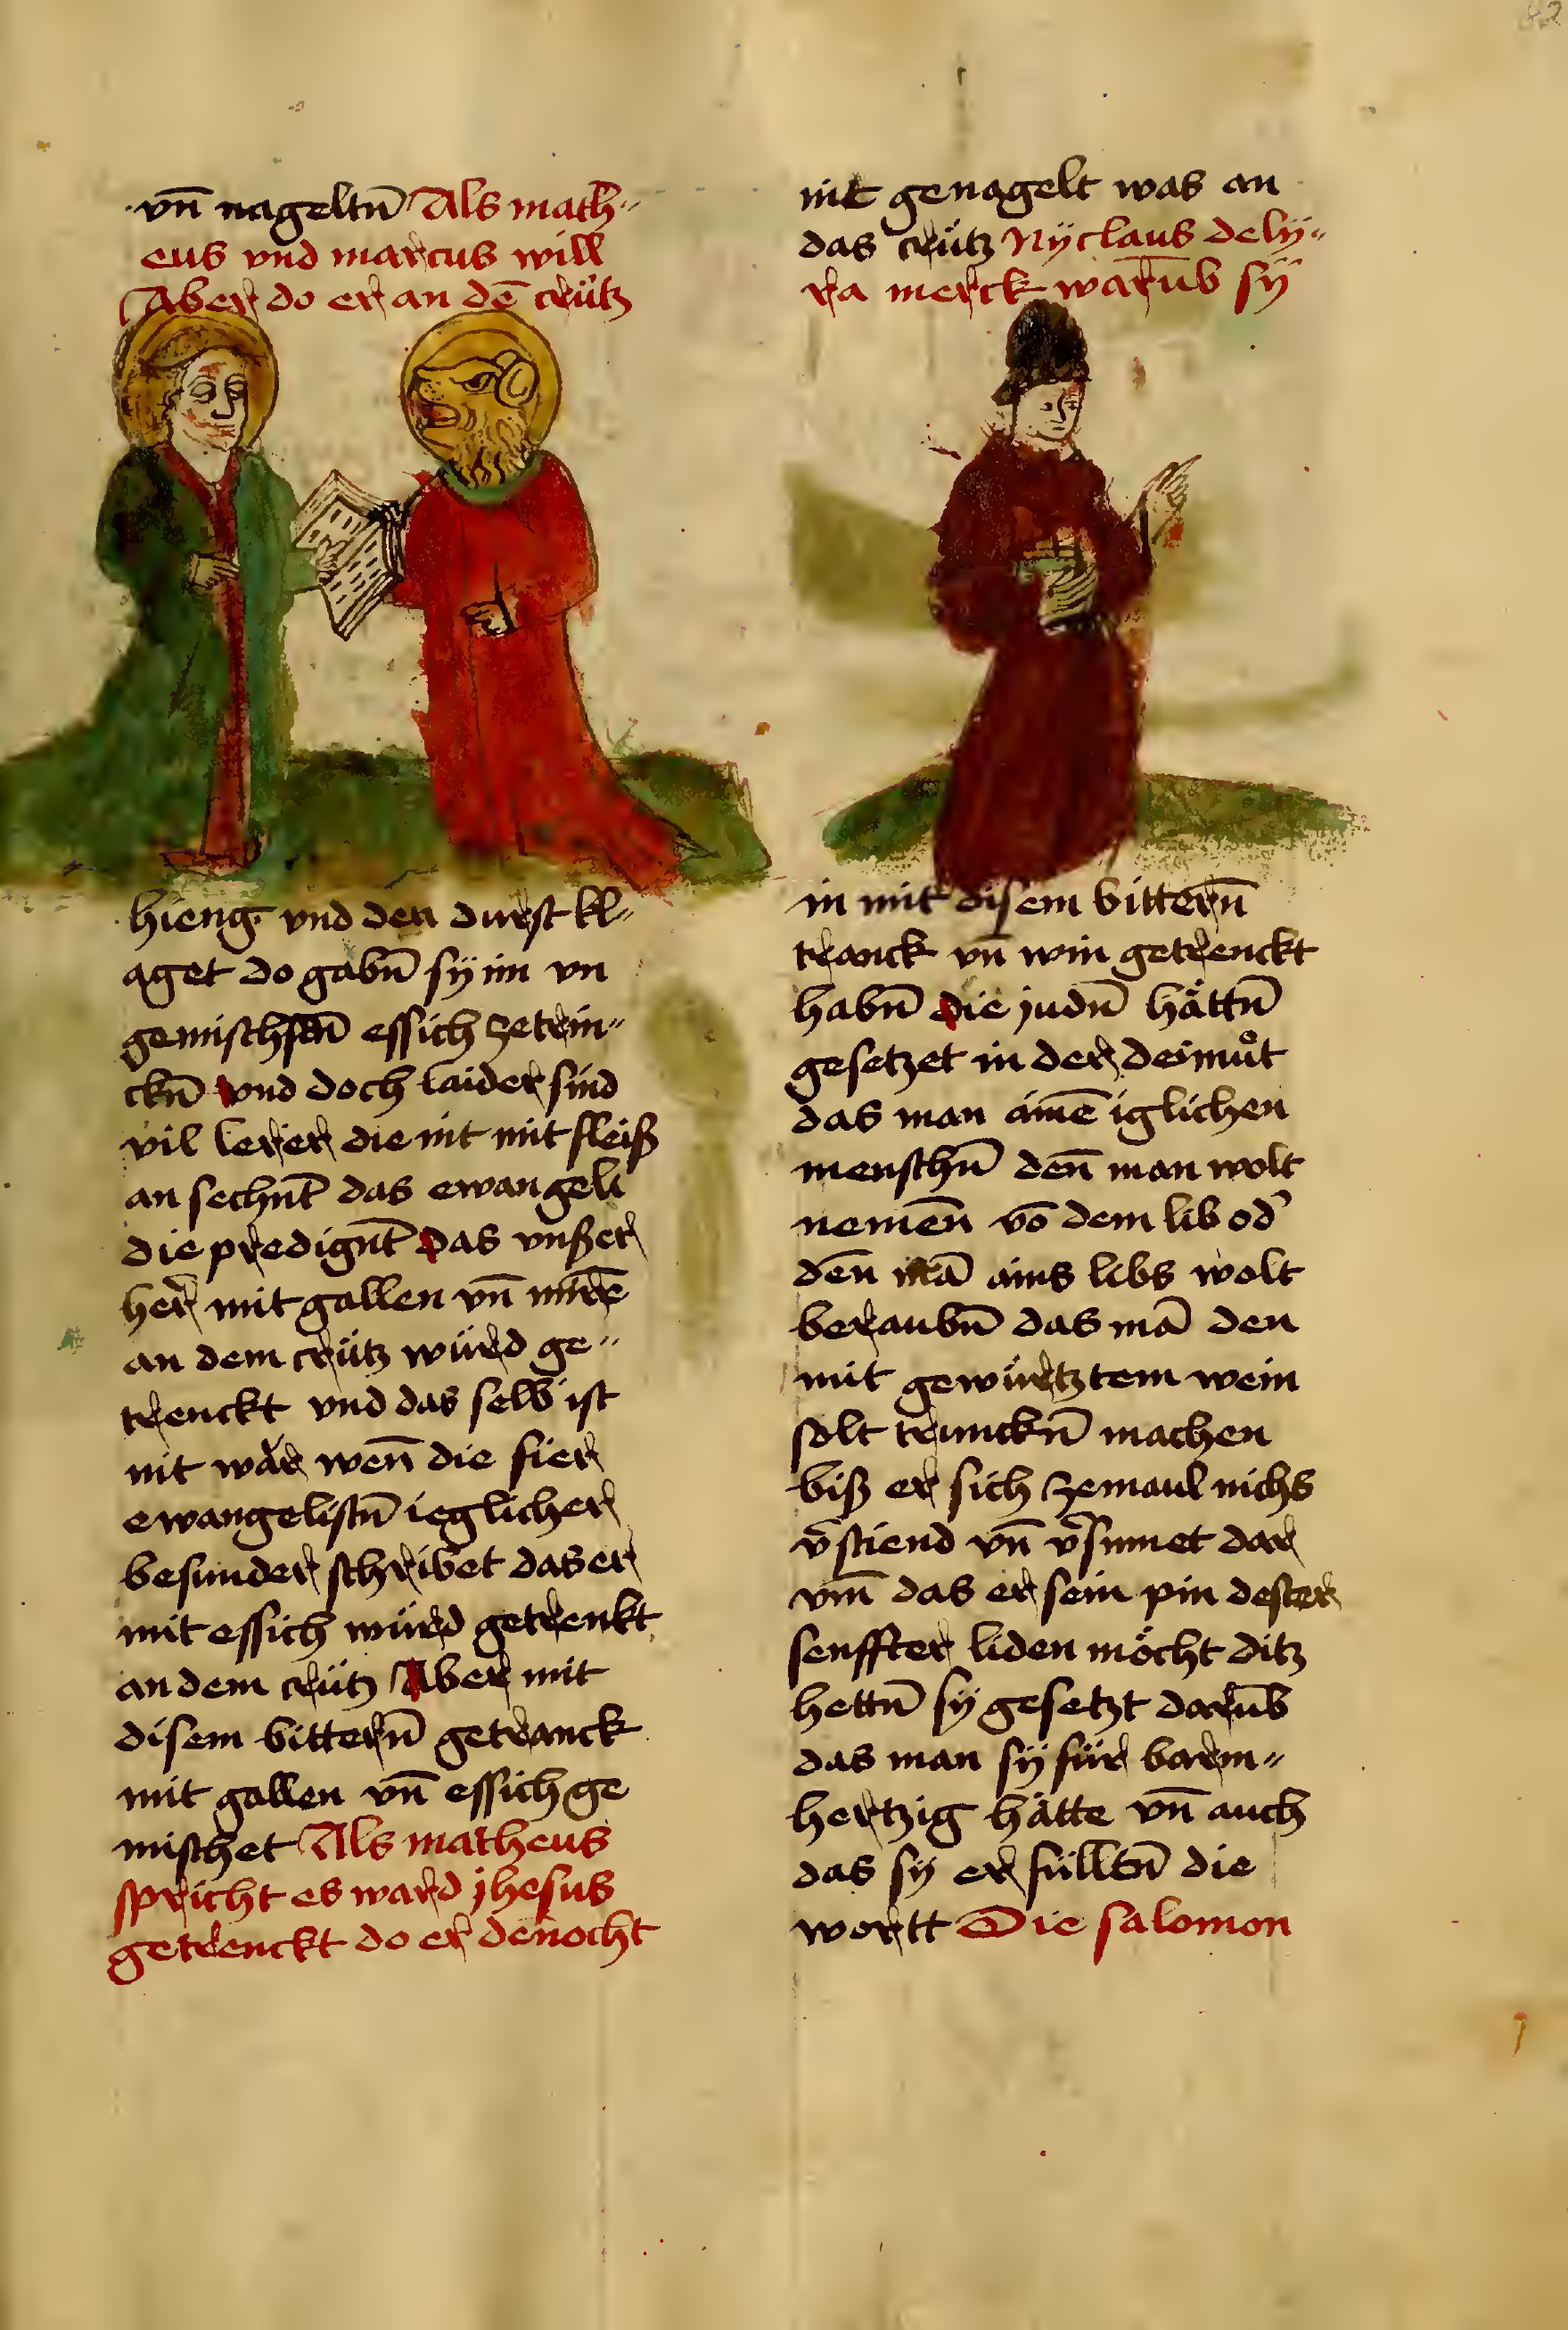 vn̄ nageltn̄ Als math〃
eus vnd marcus will
Aber do er an dē crütz
hieng vnd den durst kl〃
aget do gabn̄ sÿ im vn
gemischten̄ essich zetrin〃
ckn̄ vnd doch laider sind
vil lerer die nit mit fleiß
an sechnt̄ das ewangeli
die predignt̄ das vnßer
her mit gallen vn̄ mirrē
an dem crütz würd ge〃
trenckt vnd das selb ist
nit wăr wen̄ die fier
ewangelistn̄ ieglicher
besunder schribet das er
mit essich würd getrenkt
an dem crütz Aber mit
disem bittern̄ getranck
mit gallen vn̄ essich ge
mischet Als matheus
spricht es ward jhesus
getrenckt do er den̄ocht
nit genagelt was an
das crütz Nÿclaus delÿ〃
ra merck warūb sÿ
in mit disem bittern̄
tranck vn̄ win getrenckt
habn̄ die judn̄ hättn̄
gesetzet in der deimůt
das man aimē iglichen
menschn̄ den̄ man wolt
nemen̄ vō dem lib od̕
den̄ mā ains libs wolt
beraubn̄ das mā den
mit gewürtztem wein
solt trunckn̄ machen
biß er sich zemaul nichs
v̄stiend vn̄ v̄sinnet dar
vm̄ das er sein pin dester
senffter liden möcht ditz
hettn̄ sÿ gesetzt darūb
das man sÿ für barm〃
hertzig hätte vn̄ auch
das sÿ er fülltn̄ die
wortt Die salomon